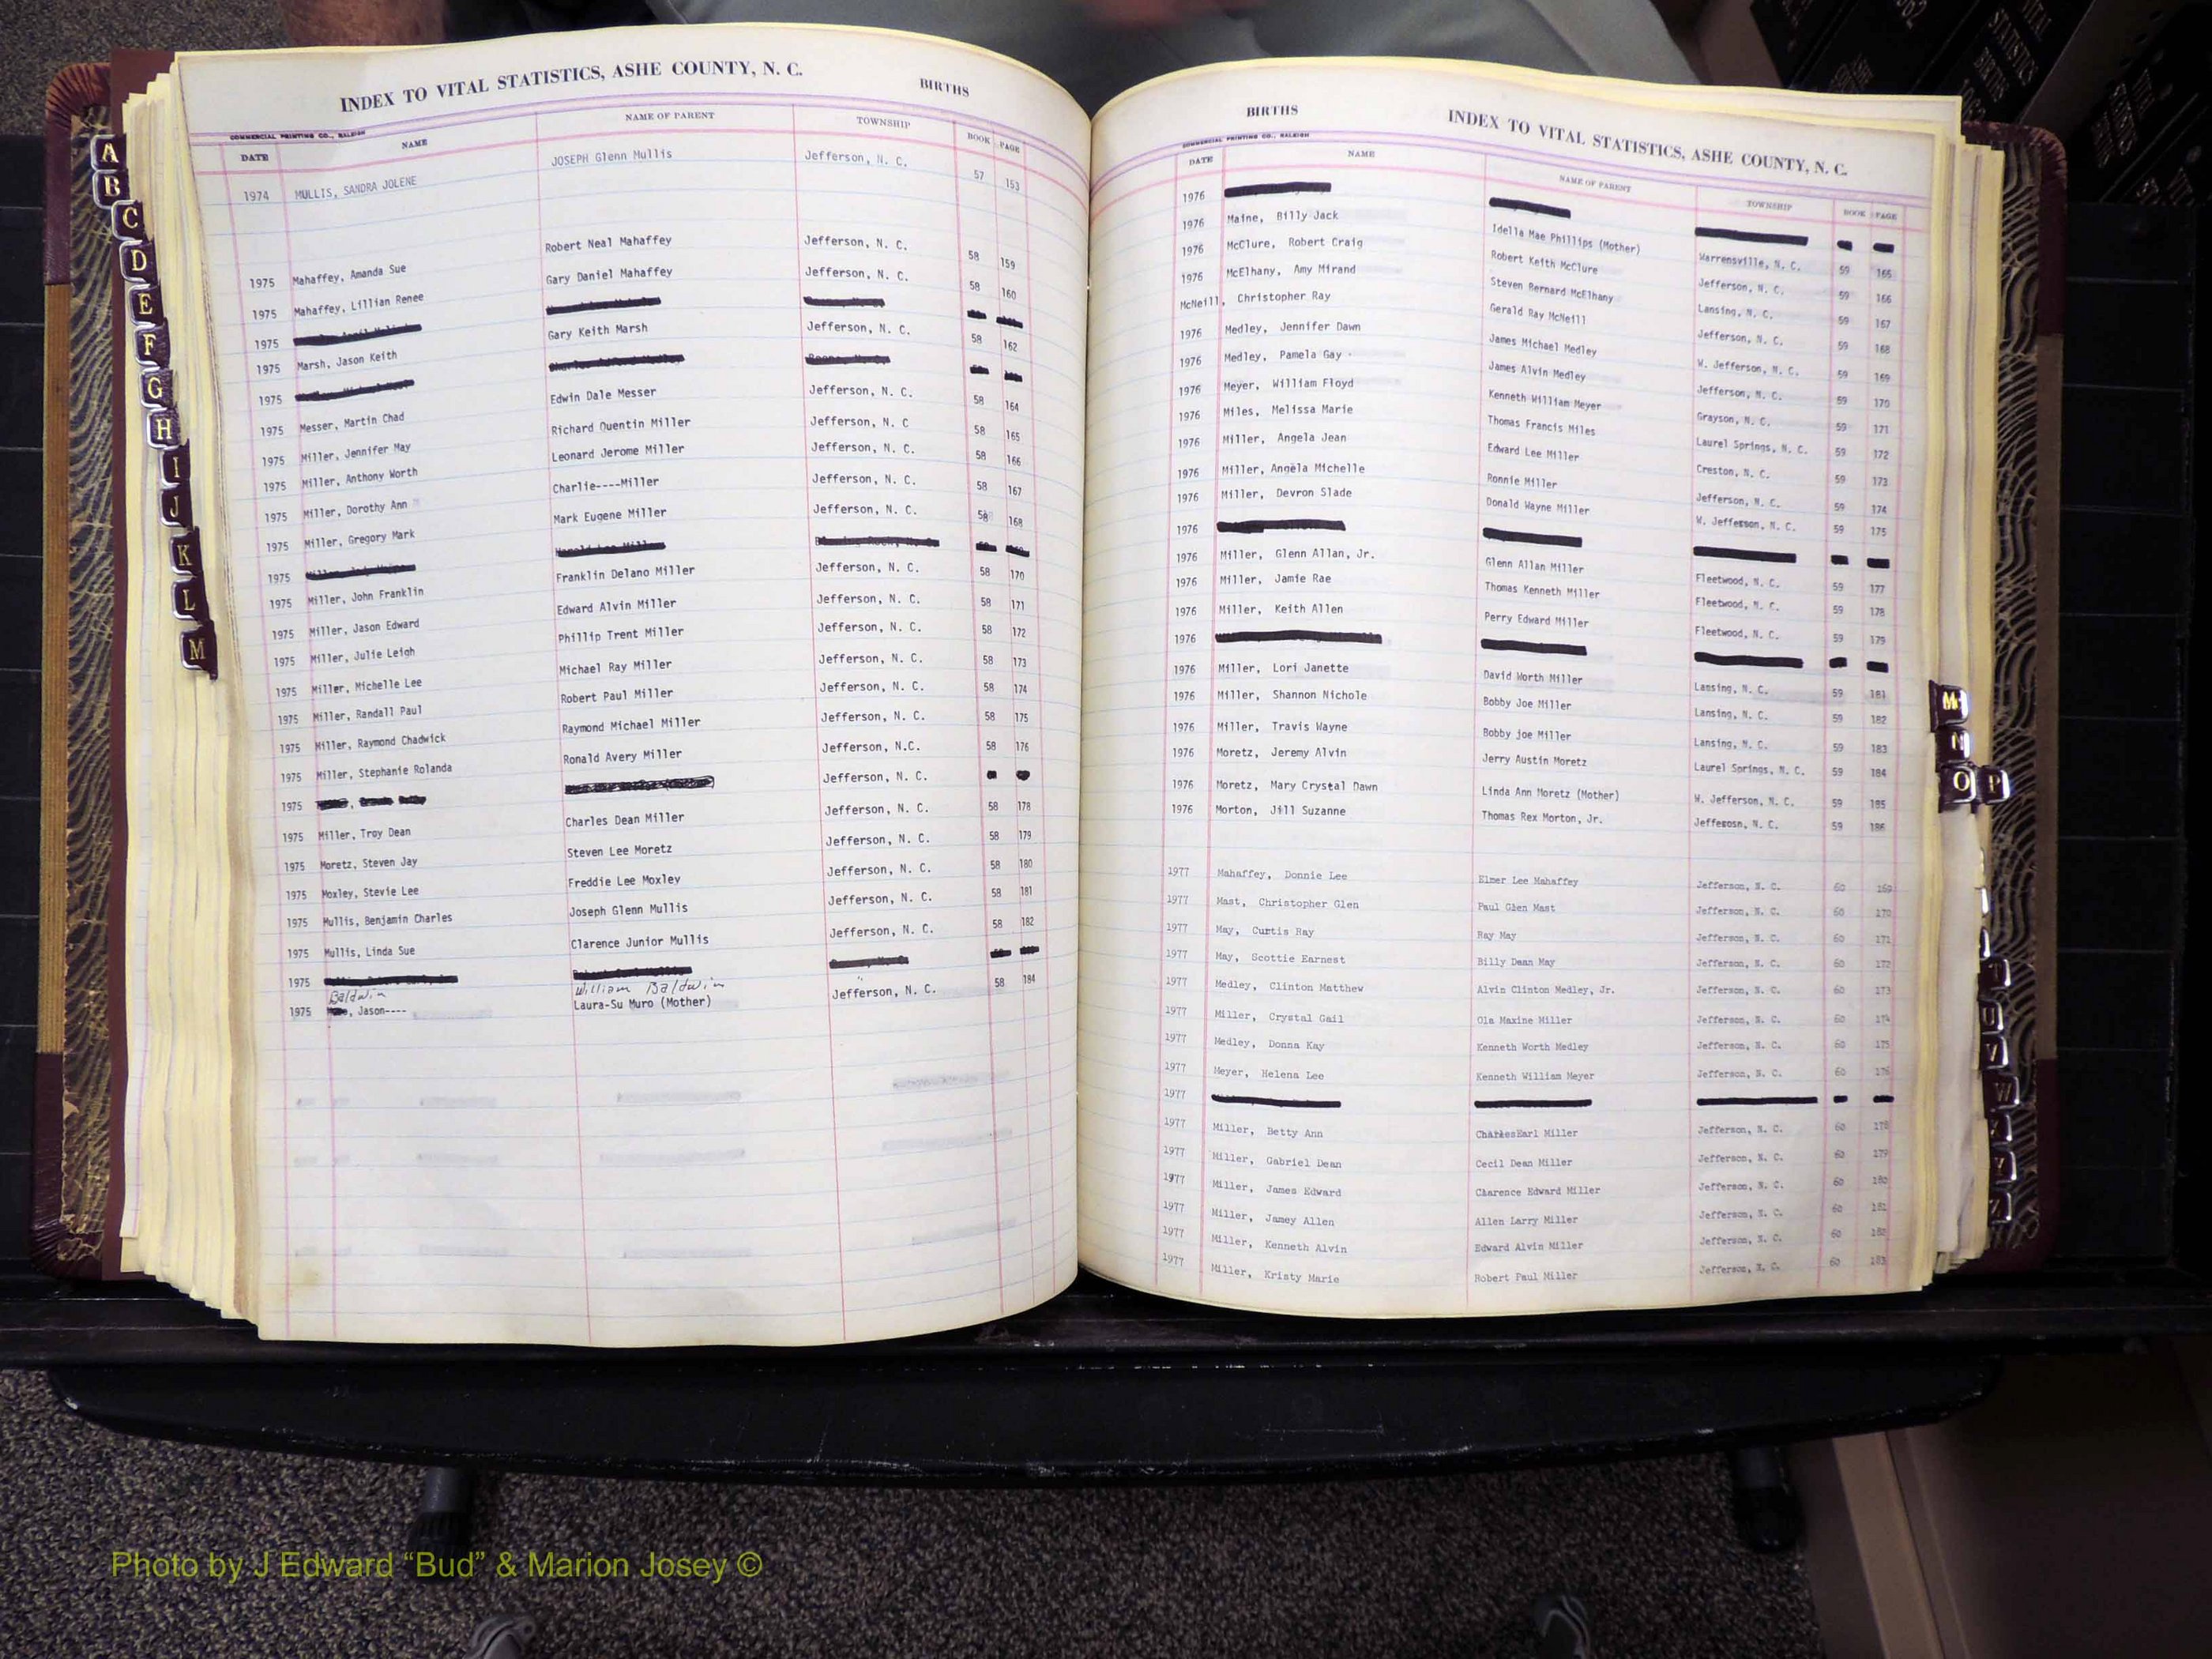 INDEX TO VITAL STATISTICS, ASHE COUNTY, N. C. BIRTHS
COMMERCIAL PRINTING CO., RALEIGH
DATE NAME NAME OF PARENT TOWNSHIP BOOK PAGE
1974 MULLIS, SANDRA JOLENE JOSEPH Glenn Mullis Jefferson, N. C. 57 153
1975 Mahaffey, Amanda Sue Robert Neal Mahaffey Jefferson, N. C. 58 159
1975 Mahaffey, Lillian Renee Gary Daniel Mahaffey Jefferson, N. C. 58 160
1975
1975 Marsh, Jason Keith Gary Keith Marsh Jefferson, N. C. 58 162
1975
1975 Messer, Martin Chad Edwin Dale Messer Jefferson, N. C. 58 164
1975 Miller, Jennifer May Richard Quentin Miller Jefferson, N. C 58 165
1975 Miller, Anthony Worth Leonard Jerome Miller Jefferson, N. C. 58 166
1975 Miller, Dorothy Ann Charlie----Miller Jefferson, N. C. 58 167
1975 Miller, Gregory Mark Mark Eugene Miller Jefferson, N. C. 58 168
1975
1975 Miller, John Franklin Franklin Delano Miller Jefferson, N. C. 58 170
1975 Miller, Jason Edward Edward Alvin Miller Jefferson, N. C. 58 171
1975 Miller, Julie Leigh Phillip Trent Miller Jefferson, N. C. 58 172
1975 Miller, Michelle Lee Michael Ray Miller Jefferson, N. C. 58 173
1975 Miller, Randall Paul Robert Paul Miller Jefferson, N. C. 58 174
1975 Miller, Raymond Chadwick Raymond Michael Miller Jefferson, N. C. 58 175
1975 Miller, Stephanie Rolanda Ronald Avery Miller Jefferson, N.C. 58 176
1975 Jefferson, N. C.
1975 Miller, Troy Dean Charles Dean Miller Jefferson, N. C. 58 178
1975 Moretz, Steven Jay Steven Lee Moretz Jefferson, N. C. 58 179
1975 Moxley, Stevie Lee Freddie Lee Moxley Jefferson, N. C. 58 180
1975 Mullis, Benjamin Charles Joseph Glenn Mullis Jefferson, N. C. 58 181
1975 Mullis, Linda Sue Clarence Junior Mullis Jefferson, N. C. 58 182
1975
Baldwin William Baldwin
1975 , Jason---- Laura-Su Muro (Mother) Jefferson, N. C. 58 184
A
B
C
D
E
F
G
H
I
J
K
L
M
BIRTHS INDEX TO VITAL STATISTICS, ASHE COUNTY, N. C.
COMMERCIAL PRINTING CO., RALEIGH
DATE NAME NAME OF PARENT TOWNSHIP BOOK PAGE
1976
1976 Maine, Billy Jack Idella Mae Phillips (Mother) Warrensville, N. C. 59 165
1976 McClure, Robert Craig Robert Keith McClure Jefferson, N. C. 59 166
1976 McElhany, Amy Mirand Steven Bernard McElhany Lansing, N. C. 59 167
McNeill, Christopher Ray Gerald Ray McNeill Jefferson, N. C. 59 168
1976 Medley, Jennifer Dawn James Michael Medley W. Jefferson, N. C. 59 169
1976 Medley, Pamela Gay James Alvin Medley Jefferson, N. C. 59 170
1976 Meyer, William Floyd Kenneth William Meyer Grayson, N. C. 59 171
1976 Miles, Melissa Marie Thomas Francis Miles Laurel Springs, N. C. 59 172
1976 Miller, Angela Jean Edward Lee Miller Creston, N. C. 59 173
1976 Miller, Angela Michelle Ronnie Miller Jefferson, N. C. 59 174
1976 Miller, Devron Slade Donald Wayne Miller W. Jefferson, N. C. 59 175
1976
1976 Miller, Glenn Allan, Jr. Glenn Allan Miller Fleetwood, N. C. 59 177
1976 Miller, Jamie Rae Thomas Kenneth Miller Fleetwood, N. C. 59 178
1976 Miller, Keith Allen Perry Edward Miller Fleetwood, N. C. 59 179
1976
1976 Miller, Lori Janette David Worth Miller Lansing, N. C. 59 181
1976 Miller, Shannon Nichole Bobby Joe Miller Lansing, N. C. 59 182
1976 Miller, Travis Wayne Bobby joe Miller Lansing, N. C. 59 183
1976 Moretz, Jeremy Alvin Jerry Austin Moretz Laurel Springs, N. C. 59 184
1976 Moretz, Mary Crystal Dawn Linda Ann Moretz (Mother) W. Jefferson, N. C. 59 185
1976 Morton, Jill Suzanne Thomas Rex Morton, Jr. Jeffeosn, N. C. 59 186
1977 Mahaffey, Donnie Lee Elmer Lee Mahaffey Jefferson, N. C. 60 169
1977 Mast, Christopher Glen Paul Glen Mast Jefferson, N. C. 60 170
1977 May, Curtis Ray Ray May Jefferson, N. C. 60 171
1977 May, Scottie Earnest Billy Dean May Jefferson, N. C. 60 172
1977 Medley, Clinton Matthew Alvin Clinton Medley, Jr. Jefferson, N. C. 60 173
1977 Miller, Crystal Gail Ola Maxine Miller Jefferson, N. C. 60 174
1977 Medley, Donna Kay Kenneth Worth Medley Jefferson, N. C. 60 175
1977 Meyer, Helena Lee Kenneth William Meyer Jefferson, N. C. 60 176
1977
1977 Miller, Betty Ann CharlesEarl Miller Jefferson, N. C. 60 178
1977 Miller, Gabriel Dean Cecil Dean Miller Jefferson, N. C. 60 179
1977 Miller, James Edward Clarence Edward Miller Jefferson, N. C. 60 180
1977 Miller, Jamey Allen Allen Larry Miller Jefferson, N. C. 60 181
1977 Miller, Kenneth Alvin Edward Alvin Miller Jefferson, N. C. 60 182
1977 Miller, Kristy Marie Robert Paul Miller Jefferson, N. C. 60 183
Mc
N
O P
T
U
V
W
Y
Z
Photo by J Edward “Bud” & Marion Josey ©